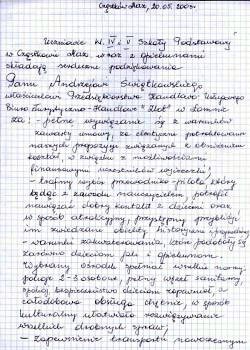 Częstków Max, 20.05.2005.
Uczniowie kl. IV i V Szkoły Podstawowej
w Częstkowie Max wraz z opiekunami
składają serdeczne podziękowania
Panu Andrzejowi
właścicielowi Przedsiębiorstwa Handlowo Usługowego
Biuro Turystyczno-Handlowe w Łomnie
za: - pełne wywiązanie się z warunków
zawartej umowy, za elastyczne potraktowanie
naszych propozycji związanych z obniżeniem
kosztów, w związku z możliwościami
finansowymi uczestników wycieczki!
- trafny wybór przewodnika - pilota, który
będąc z zawodu nauczycielem potrafił
nawiązać dobry kontakt z dziećmi oraz
w sposób atrakcyjny, przystępny przybliżył
im zwiedzane obiekty historyczne i przyrodnicze
- warunki zakwaterowania, które podobały się
zarówno dzieciom jak i opiekunom.
Wybrany ośrodek spełniał wszelkie normy:
pokoje 2-3 osobowe, pełny węzeł sanitarny,
pobyt bezpieczeństwo dzieciom zapewniał, a
całodobowa obsługa chętnie, w sposób
kulturalny ułatwiała rozwiązywanie
wszelkich drobnych spraw;
- zapewnienie transportu nowoczesnym